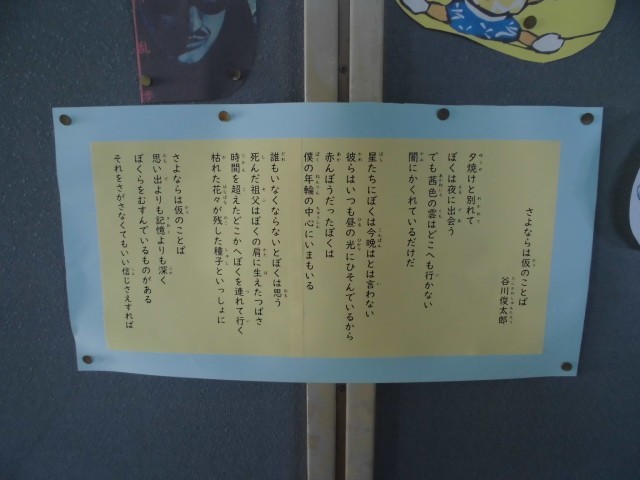 さよならは仮のことば
谷川俊太郎
夕焼けと別れて
ぼくは夜に出会う
でも茜色の雲はどこへも行かない
闇にかくれているだけだ
星たちにぼくは今晩はとは言わない
彼らはいつも昼の光にひそんでいるから
赤んぼうだったぼくは
僕の年輪の中心にいまもいる
誰もいなくならないとぼくは思う
死んだ祖父はぼくの肩に生えたつばさ
時間を超えたどこかへぼくを連れて行く
枯れた花々が残した種子といっしょに
さよならは仮のことば
思い出よりも記憶よりも深く
ぼくらをむすんでいるものがある
それをさがさなくてもいい信じさえすれば
乱